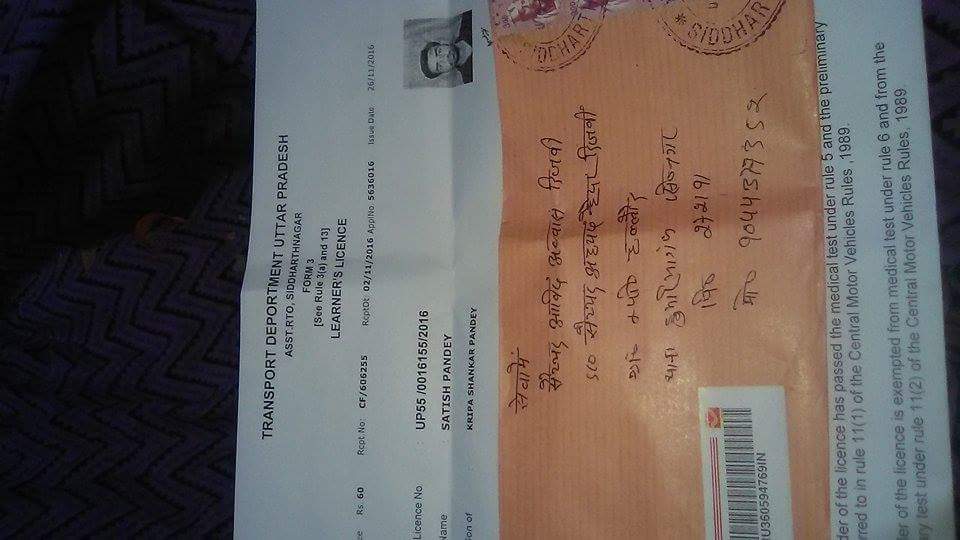 TRANSPORT DEPORTMENT UTTAR PRADESH
ASST.RTO, SIDDHARTHNAGAR
FORM 3
[See Rule 3(a) and 13]
LEARNER'S LICENCE
ee Rs. 60 Rcpt No: CF/606255 RcptDt: 02/11/2016 ApplNo 5636016 Issue Date 26/11/2016
Licence No. : UP55 /0016155/2016
Name : SATISH PANDEY
tion of KRIPA SHANKAR PANDEY
SIDDHART
SIDDHAR
सेवा में
सैय्यद आबिद अब्बास रिजवी
S/O सैय्यद अहमद हैदर रिजवी
पिन 272191
मो०
RU360594769IN
der of the licence has passed the medical test under rule 5 and the preliminary
rred to in rule 11(1) of the Central Motor Vehicles Rules ,1989.
der of the licence is exempted from medical test under rule 6 and from the
ry test under rule 11(2) of the Central Motor Vehicles Rules, 1989